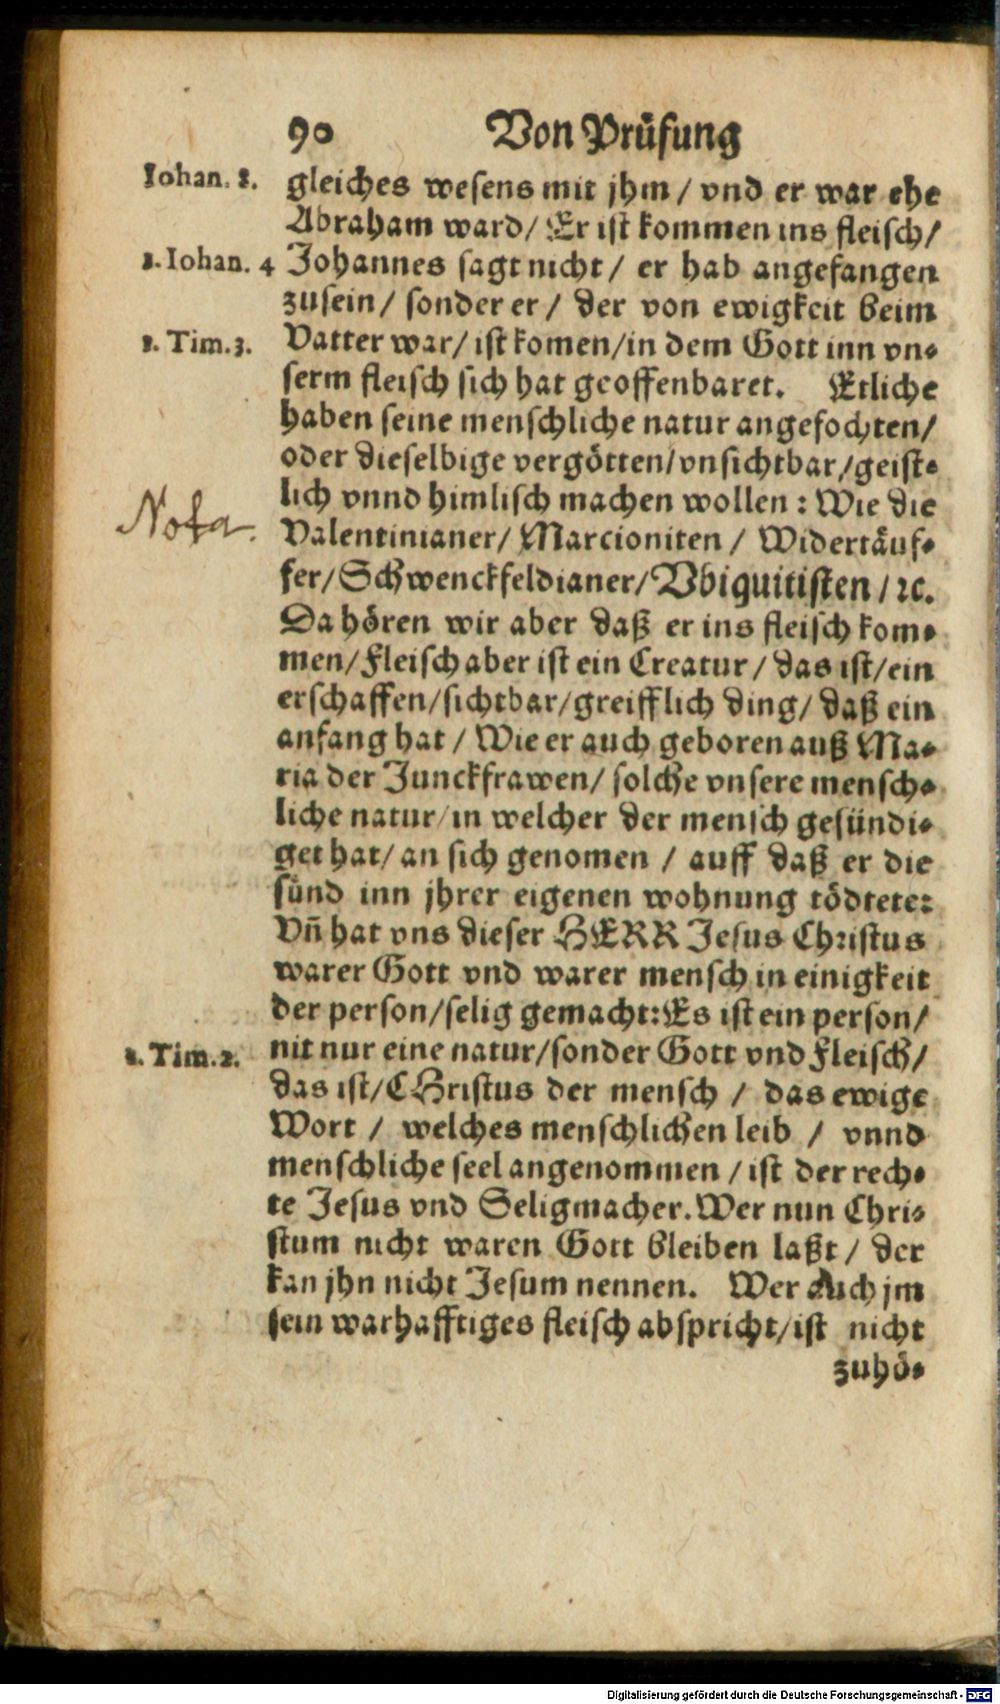 90 Von Prüfung
Iohan. 8. gleiches wesens mit jhm / vnd er war ehe
Abraham ward / Er ist kommen ins fleisch /
1. Iohan. 4 Johannes sagt nicht / er hab angefangen
zusein / sonder er / der von ewigkeit beim
1. Tim. 3. Vatter war / ist komen / in dem Gott inn vn⸗
serm fleisch sich hat geoffenbaret. Etliche
haben seine menschliche natur angefochten /
oder dieselbige vergötten / vnsichtbar / geist⸗
lich vnnd himlisch machen wollen : Wie die
Nota. Valentinianer / Marcioniten / Widertäuf⸗
fer / Schwenckfeldianer / Vbiquitisten / ꝛc.
Da hören wir aber daß er ins fleisch kom⸗
men / Fleisch aber ist ein Creatur / das ist / ein
erschaffen / sichtbar / greifflich ding / daß ein
anfang hat / Wie er auch geboren auß Ma⸗
ria der Junckfrawen / solche vnsere mensch⸗
liche natur / in welcher der mensch gesündi⸗
get hat / an sich genomen / auff daß er die
sünd inn jhrer eigenen wohnung tödtete:
Vñ hat vns dieser HERR Jesus Christus
warer Gott vnd warer mensch in einigkeit
der person / selig gemacht: Es ist ein person /
1. Tim. 2. nit nur eine natur / sonder Gott vnd Fleisch /
das ist / CHristus der mensch / das ewige
Wort / welches menschlichen leib / vnnd
menschliche seel angenommen / ist der rech⸗
te Jesus vnd Seligmacher. Wer nun Chri⸗
stum nicht waren Gott bleiben laßt / der
kan jhn nicht Jesum nennen. Wer auch jm
sein warhafftiges fleisch abspricht / ist nicht
zuhö⸗
Digitalisierung gefördert durch die Deutsche Forschungsgemeinschaft - DFG